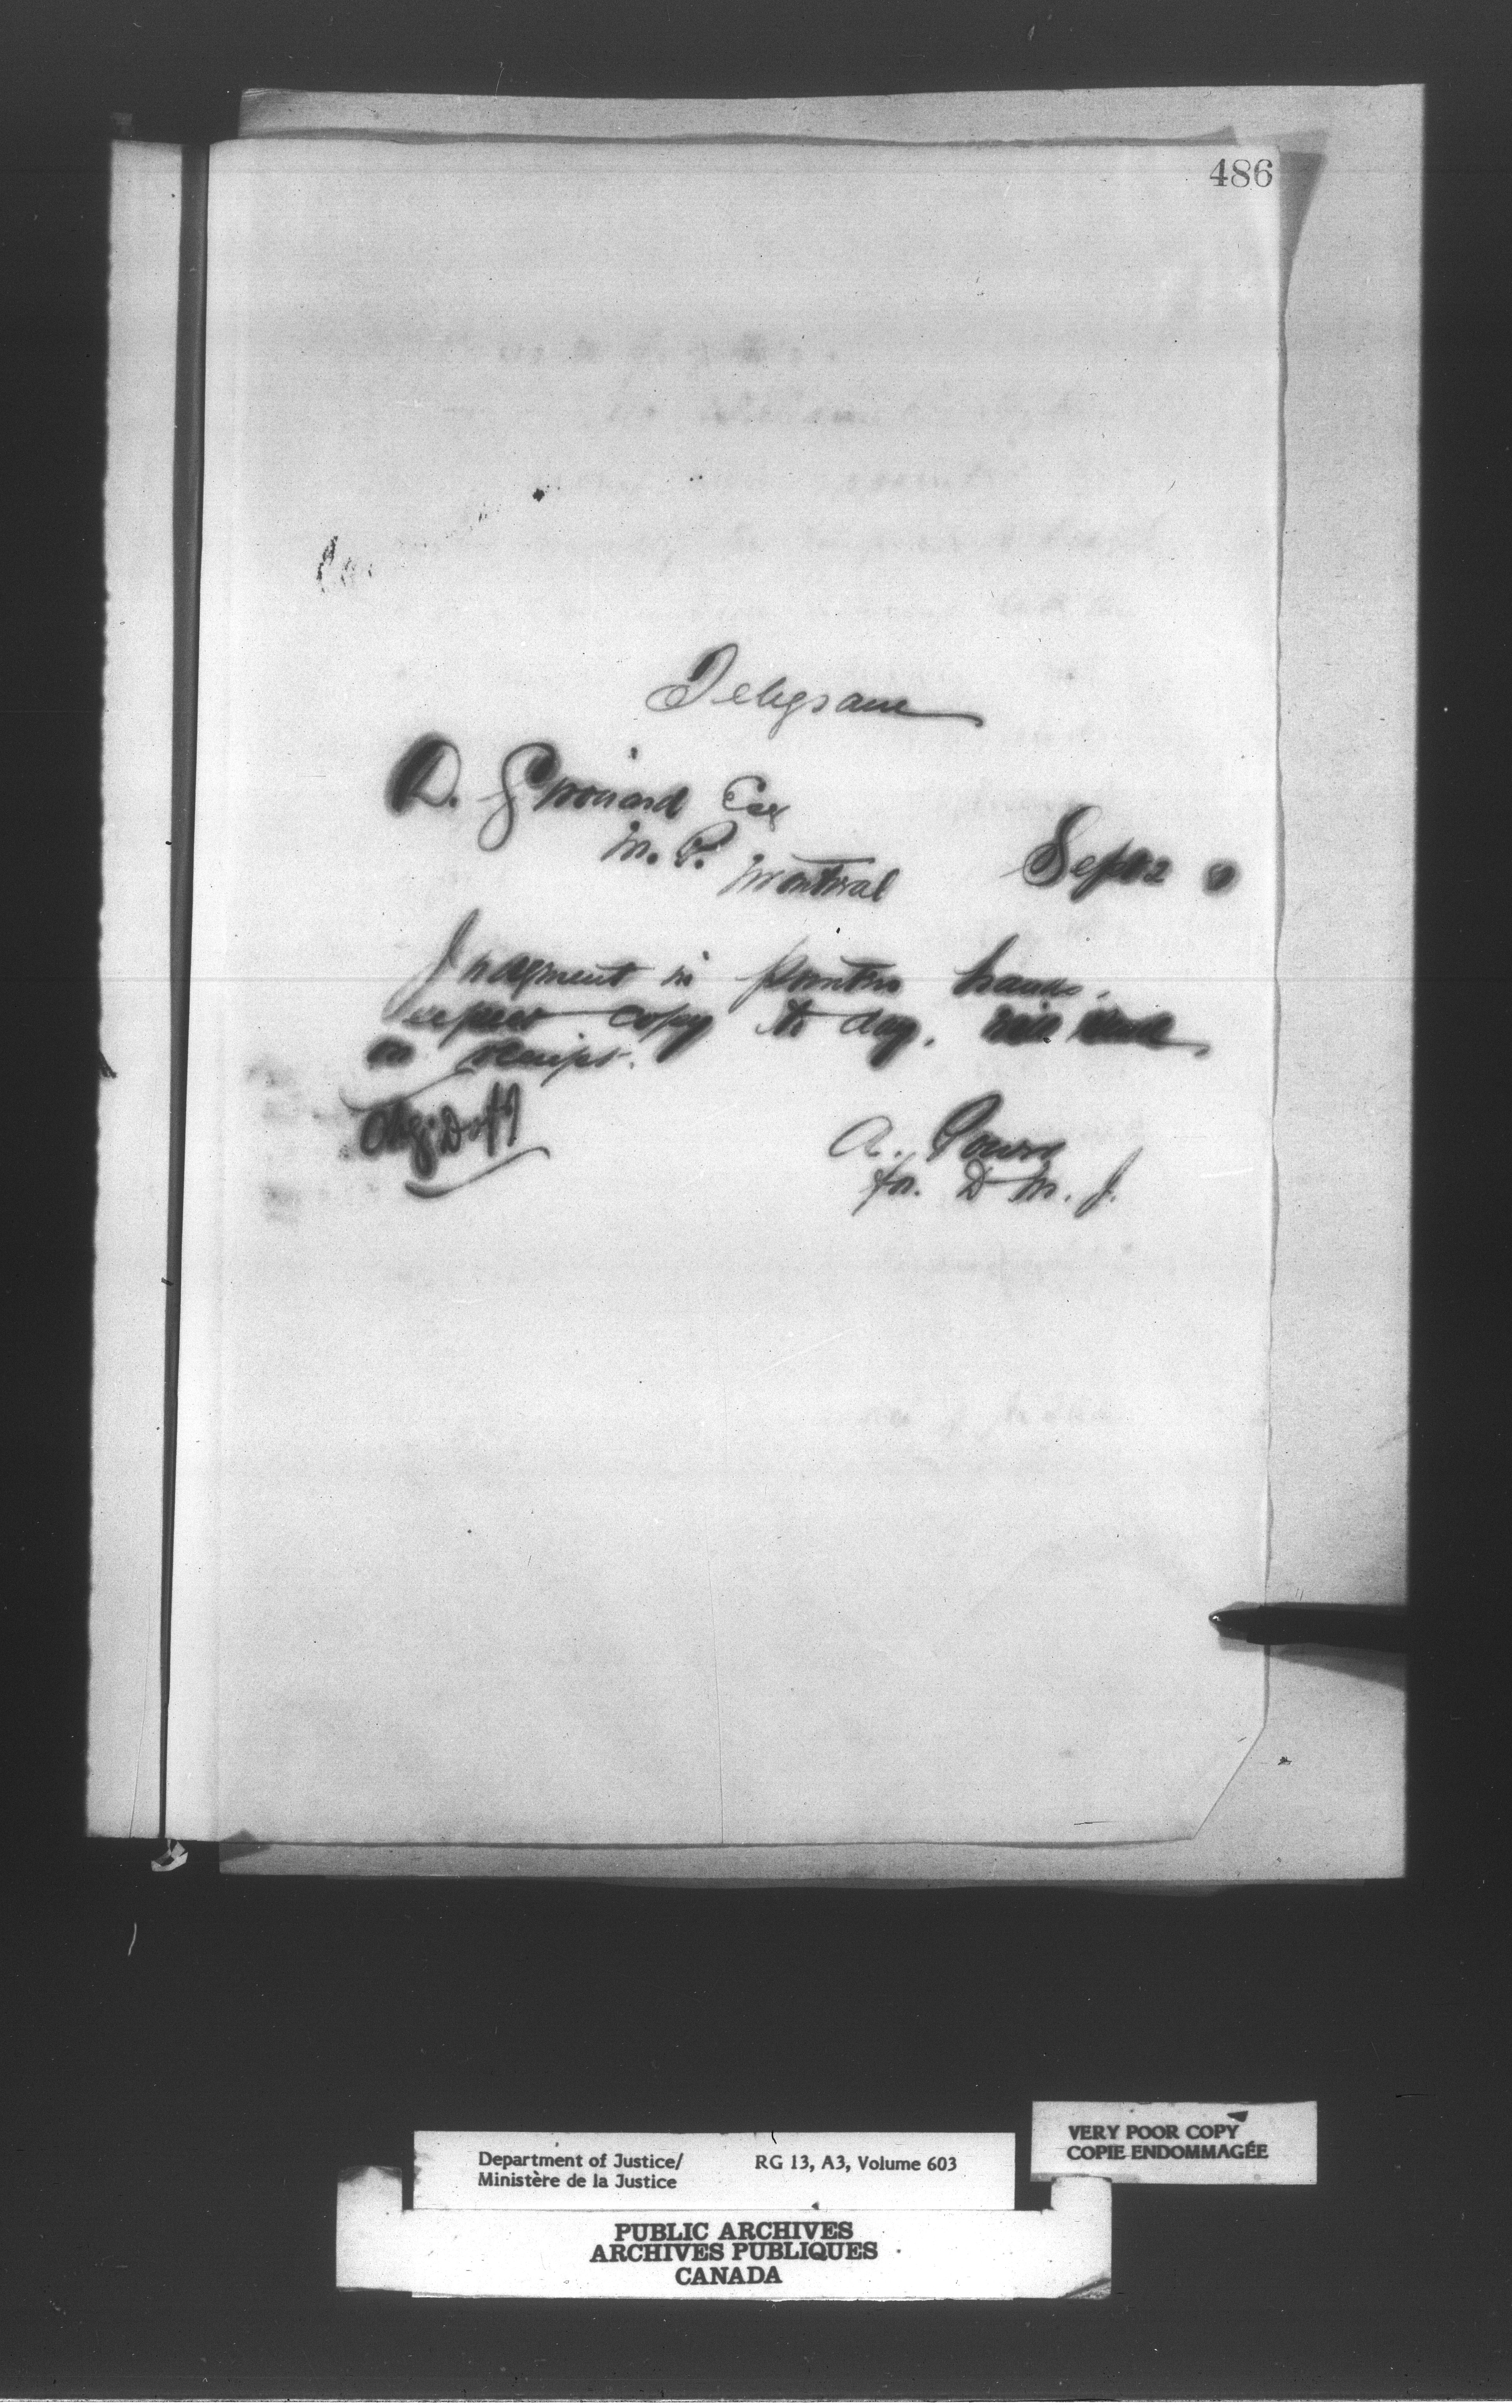 486
Telegram
D. Girouard Esq
M. P.
Montreal
Sept 2
Judgment in printers hands.
expect copy to day. will send
on receipt.
A. Power
for D M. J.
Department of Justice/
Ministère de la Justice
RG 13, A3, Volume 603
VERY POOR COPY
COPIE ENDOMMAGÉE
PUBLIC ARCHIVES
ARCHIVES PUBLIQUES
CANADA